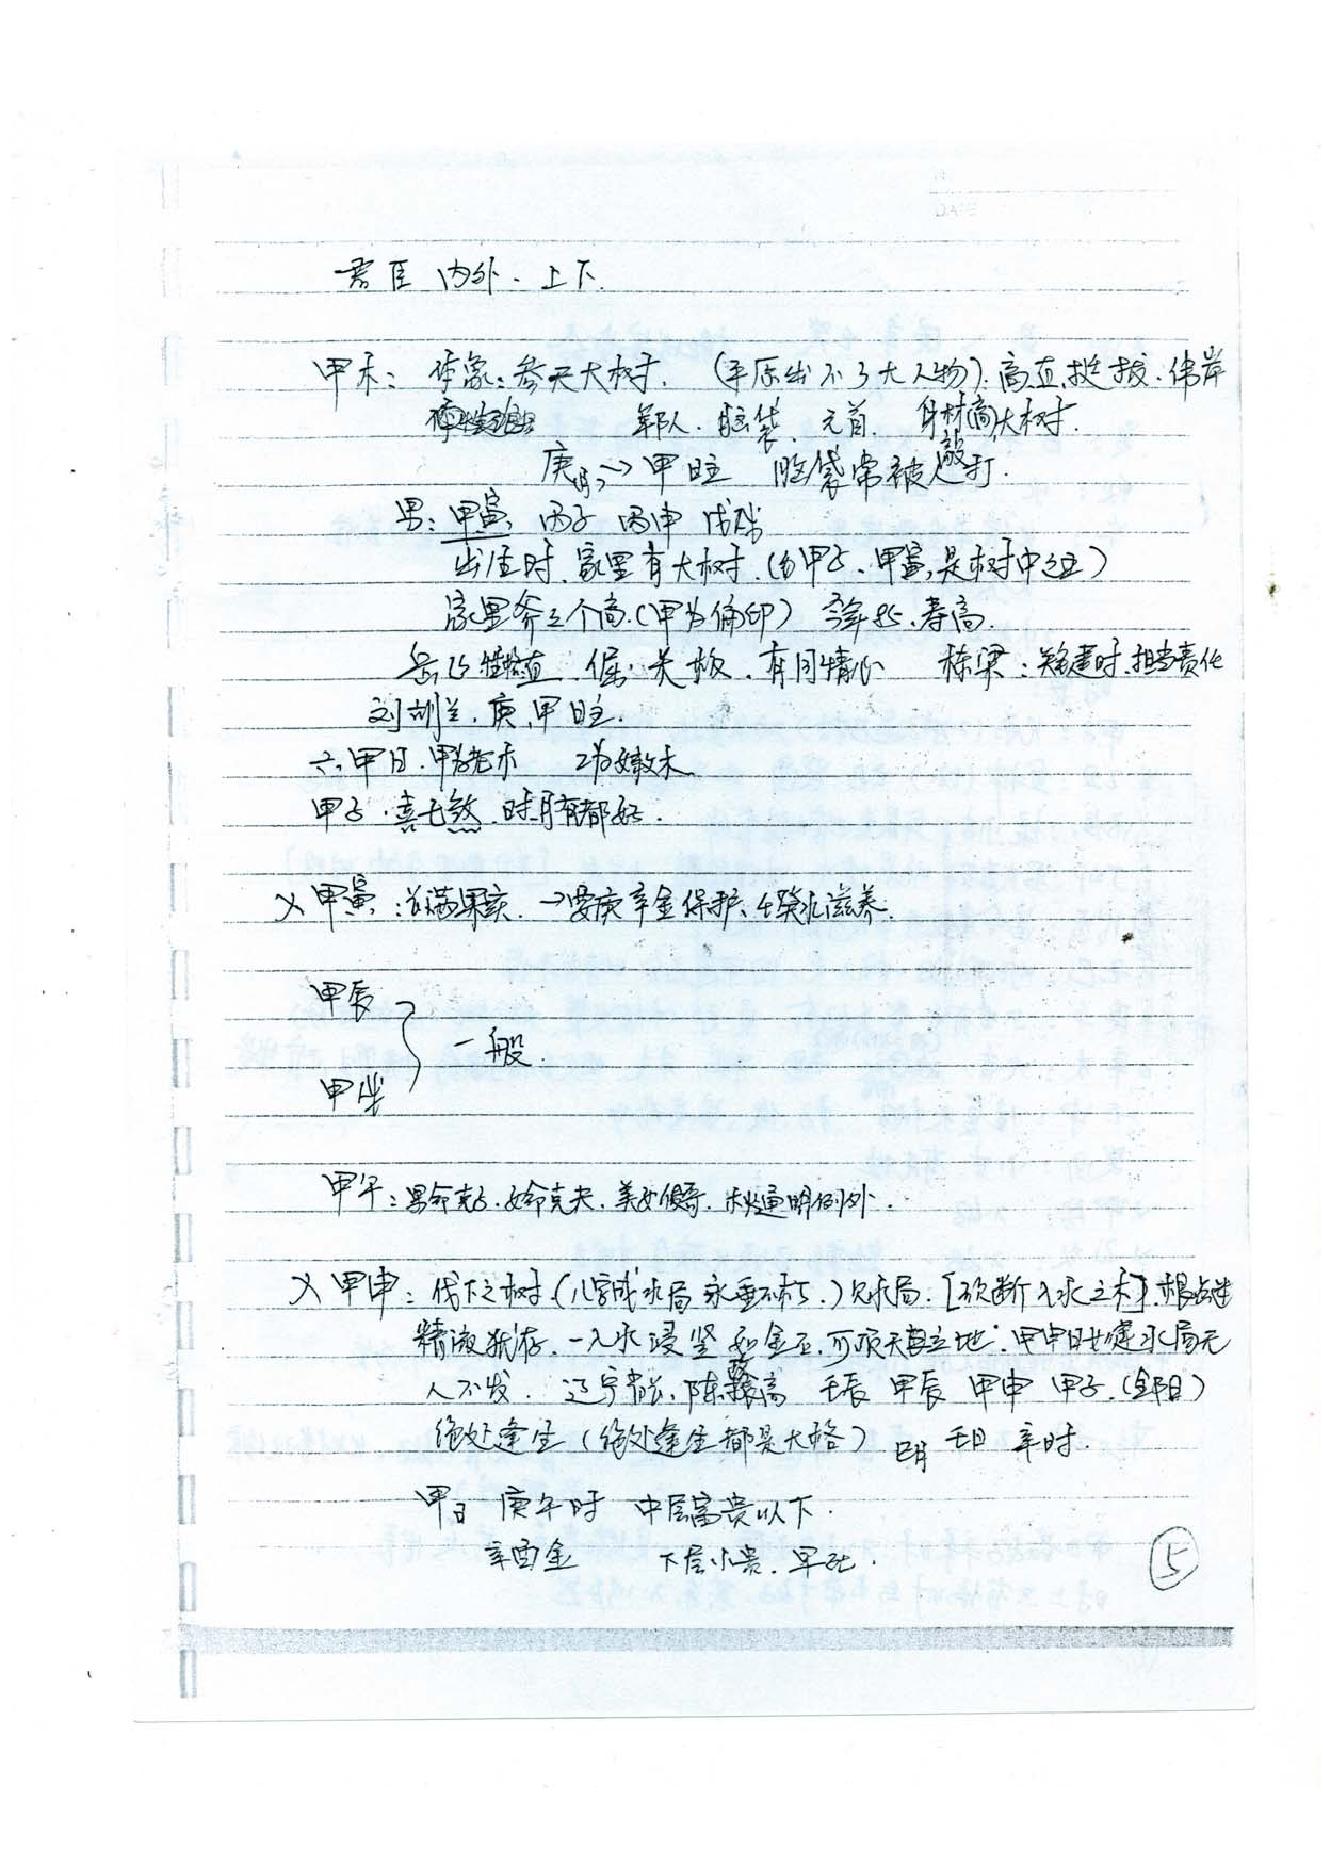 DATE
君臣 内外、上下
甲木：体象：参天大树、（平原出不了大人物）、高直、挺拔、伟岸
军队、脑袋、元首、身材高大树、
庚月→甲日主 脑袋常被人敲打、
男：甲寅、丙子 丙申 戊戌
出生时、家里有大树、（为甲子、甲寅,是树中之王）
家里爷立个高、（甲为偏印） 今年85、寿高、
性格直、倔、关板、有同情心 栋梁： 时、担当责任
刘胡兰、庚、甲日主、
六甲日、甲为老木 乙为嫩木
甲子、喜七煞 时、月有都好、
X 甲寅：为满果实、→要庚辛金保护、壬癸水滋养、
甲辰
一般、
甲戌
甲午：男命克子、女命克夫、美女俊哥、木火通明例外、
X 甲申：伐下之树（八字成水局永垂不朽、）见水局、[砍断入水之木]、根断
精液犹存、一入水浸坚如金石、可顶天直立地：甲申日如逢水局无
人不发、 辽宁省长、陈政高 壬辰 甲辰 甲申 甲子、（全阳）
绝处逢生（绝处逢生都是大格） 巳月 壬日 辛时、
甲日 庚午时 中层富贵以下、
辛酉金 下层小贵、早死、
5